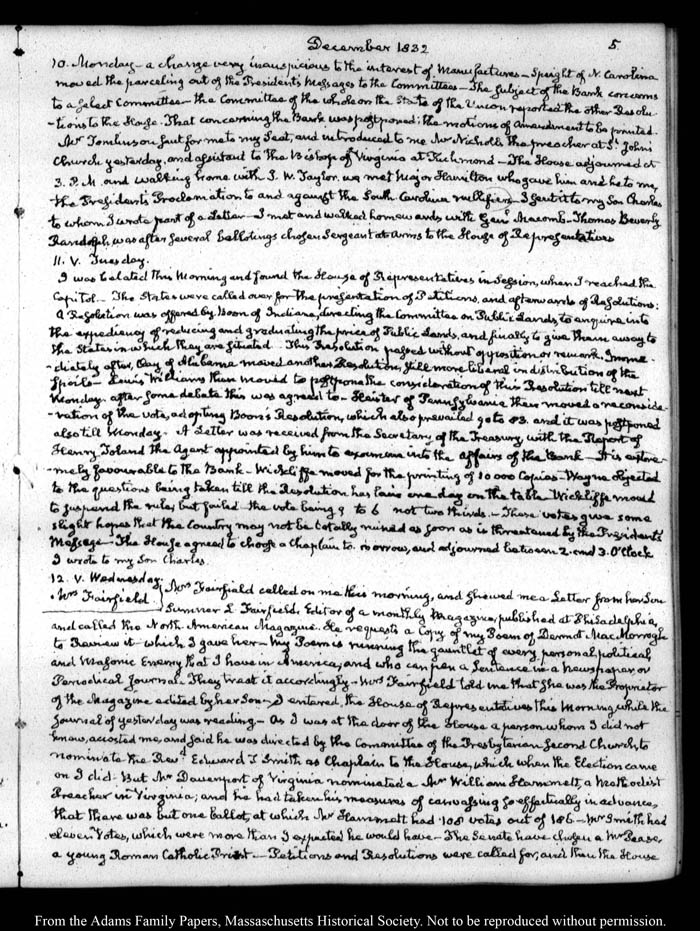 December 1832
5
10. Monday — a change very inauspicious to the interest of Manufactures — Speight of N. Carolina
moved the parceling out of the President's Messages to the Committees — The subject of the Bank concerns
to a Select Committee — the Committee of the whole on the State of the Union reported the other Resolu
-tions to the House. That concerning the Bank was postponed: the motions of Amendment to be printed.
Mr Tomlinson sent for me to my Seat, and introduced to me Mr Nichols the preacher at St. John's
Church yesterday, and assistant to the Bishop of Virginia at Richmond — The House adjourned at
3. P.M. and walking home with J. W. Taylor we met Major Hamilton who gave him and he to me,
the President's Proclamation to and against the South Carolina nullifiers — I sent it to my Son Charles
to whom I wrote part of a Letter — I met and walked homewards with Genl Macomb — Thomas Beverly
Randolph, was after several ballotings chosen Sergeant at Arms to the House of Representatives
11. V. Tuesday.
I was belated this Morning and found the House of Representatives in Session, when I reached the
Capitol — The States were called over for the presentation of Petitions, and afterwards of Resolutions:
A Resolution was offered by Boon of Indiana, directing the Committee on Public Lands, to enquire into
the expediency of reducing and graduating the price of Public Lands, and finally to give them away to
the States in which they are situated. This Resolution passed without opposition or remark. Imme-
-diately after, Clay of Alabama moved another Resolution, still more liberal in distribution of the
Spoils — Lewis Williams then moved to postpone the consideration of this Resolution till next
Monday. after some debate this was agreed to — Heister of Pennsylvania then moved a reconside-
-ration of the vote, adopting Boon's Resolution, which also prevailed 90 to 83. and it was postponed
also till Monday. A Letter was received from the Secretary of the Treasury, with the Report of
Henry Toland the Agent appointed by him to examine into the affairs of the Bank — It is extre-
-mely favourable to the Bank — Wickliffe moved for the printing of 10 000 Copies — Wayne objected
to the questions being taken till the Resolution has lain one day on the table. Wickliffe moved
to suspend the rules, but failed — the vote being 9 to 6 not two thirds. — These votes give some
slight hopes that the Country may not be totally ruined as soon as is threatened by the President's
Message — The House agreed to choose a Chaplain to morrow, and adjourned between 2. and 3. O'Clock
I wrote to my Son Charles.
12. V. Wednesday.
Mrs Fairfield
Mrs Fairfield called on me this morning, and shewed me a Letter from her Son
Sumner L Fairfield, Editor of a monthly Magazine, published at Philadelphia,
and called the North American Magazine. He requests a Copy of my Poem of Dermot MacMorrogh
to Review it which I gave her — My Poem is running the gauntlet of every personal, political,
and Masonic Enemy that I have in America, and who can pen a Sentence in a Newspaper, or
Periodical Journal. They treat it accordingly — Mrs Fairfield told me that she was the Proprietor
of the Magazine edited by her Son — I entered the House of Representatives this Morning while the
Journal of yesterday was reading — As I was at the door of the House a person whom I did not
know, accosted me and said he was directed by the Committee of the Presbyterian Second Church, to
nominate the Revd Edward J Smith as Chaplain to the House, which when the Election came
on I did. But Mr Davenport of Virginia nominated a Mr William Hammett, a Methodist
Preacher in Virginia; and he had taken his measures of canvassing so effectually in advance,
that there was but one Ballot, at which Mr Hammett had 108 votes out of 186 — Mr Smith had
eleven Votes, which were more than I expected he would have — The Senate have chosen a Mr Pease,
a young Roman Catholic Priest — Petitions and Resolutions were called for, and then the House
From the Adams Family Papers, Massachusetts Historical Society. Not to be reproduced without permission.